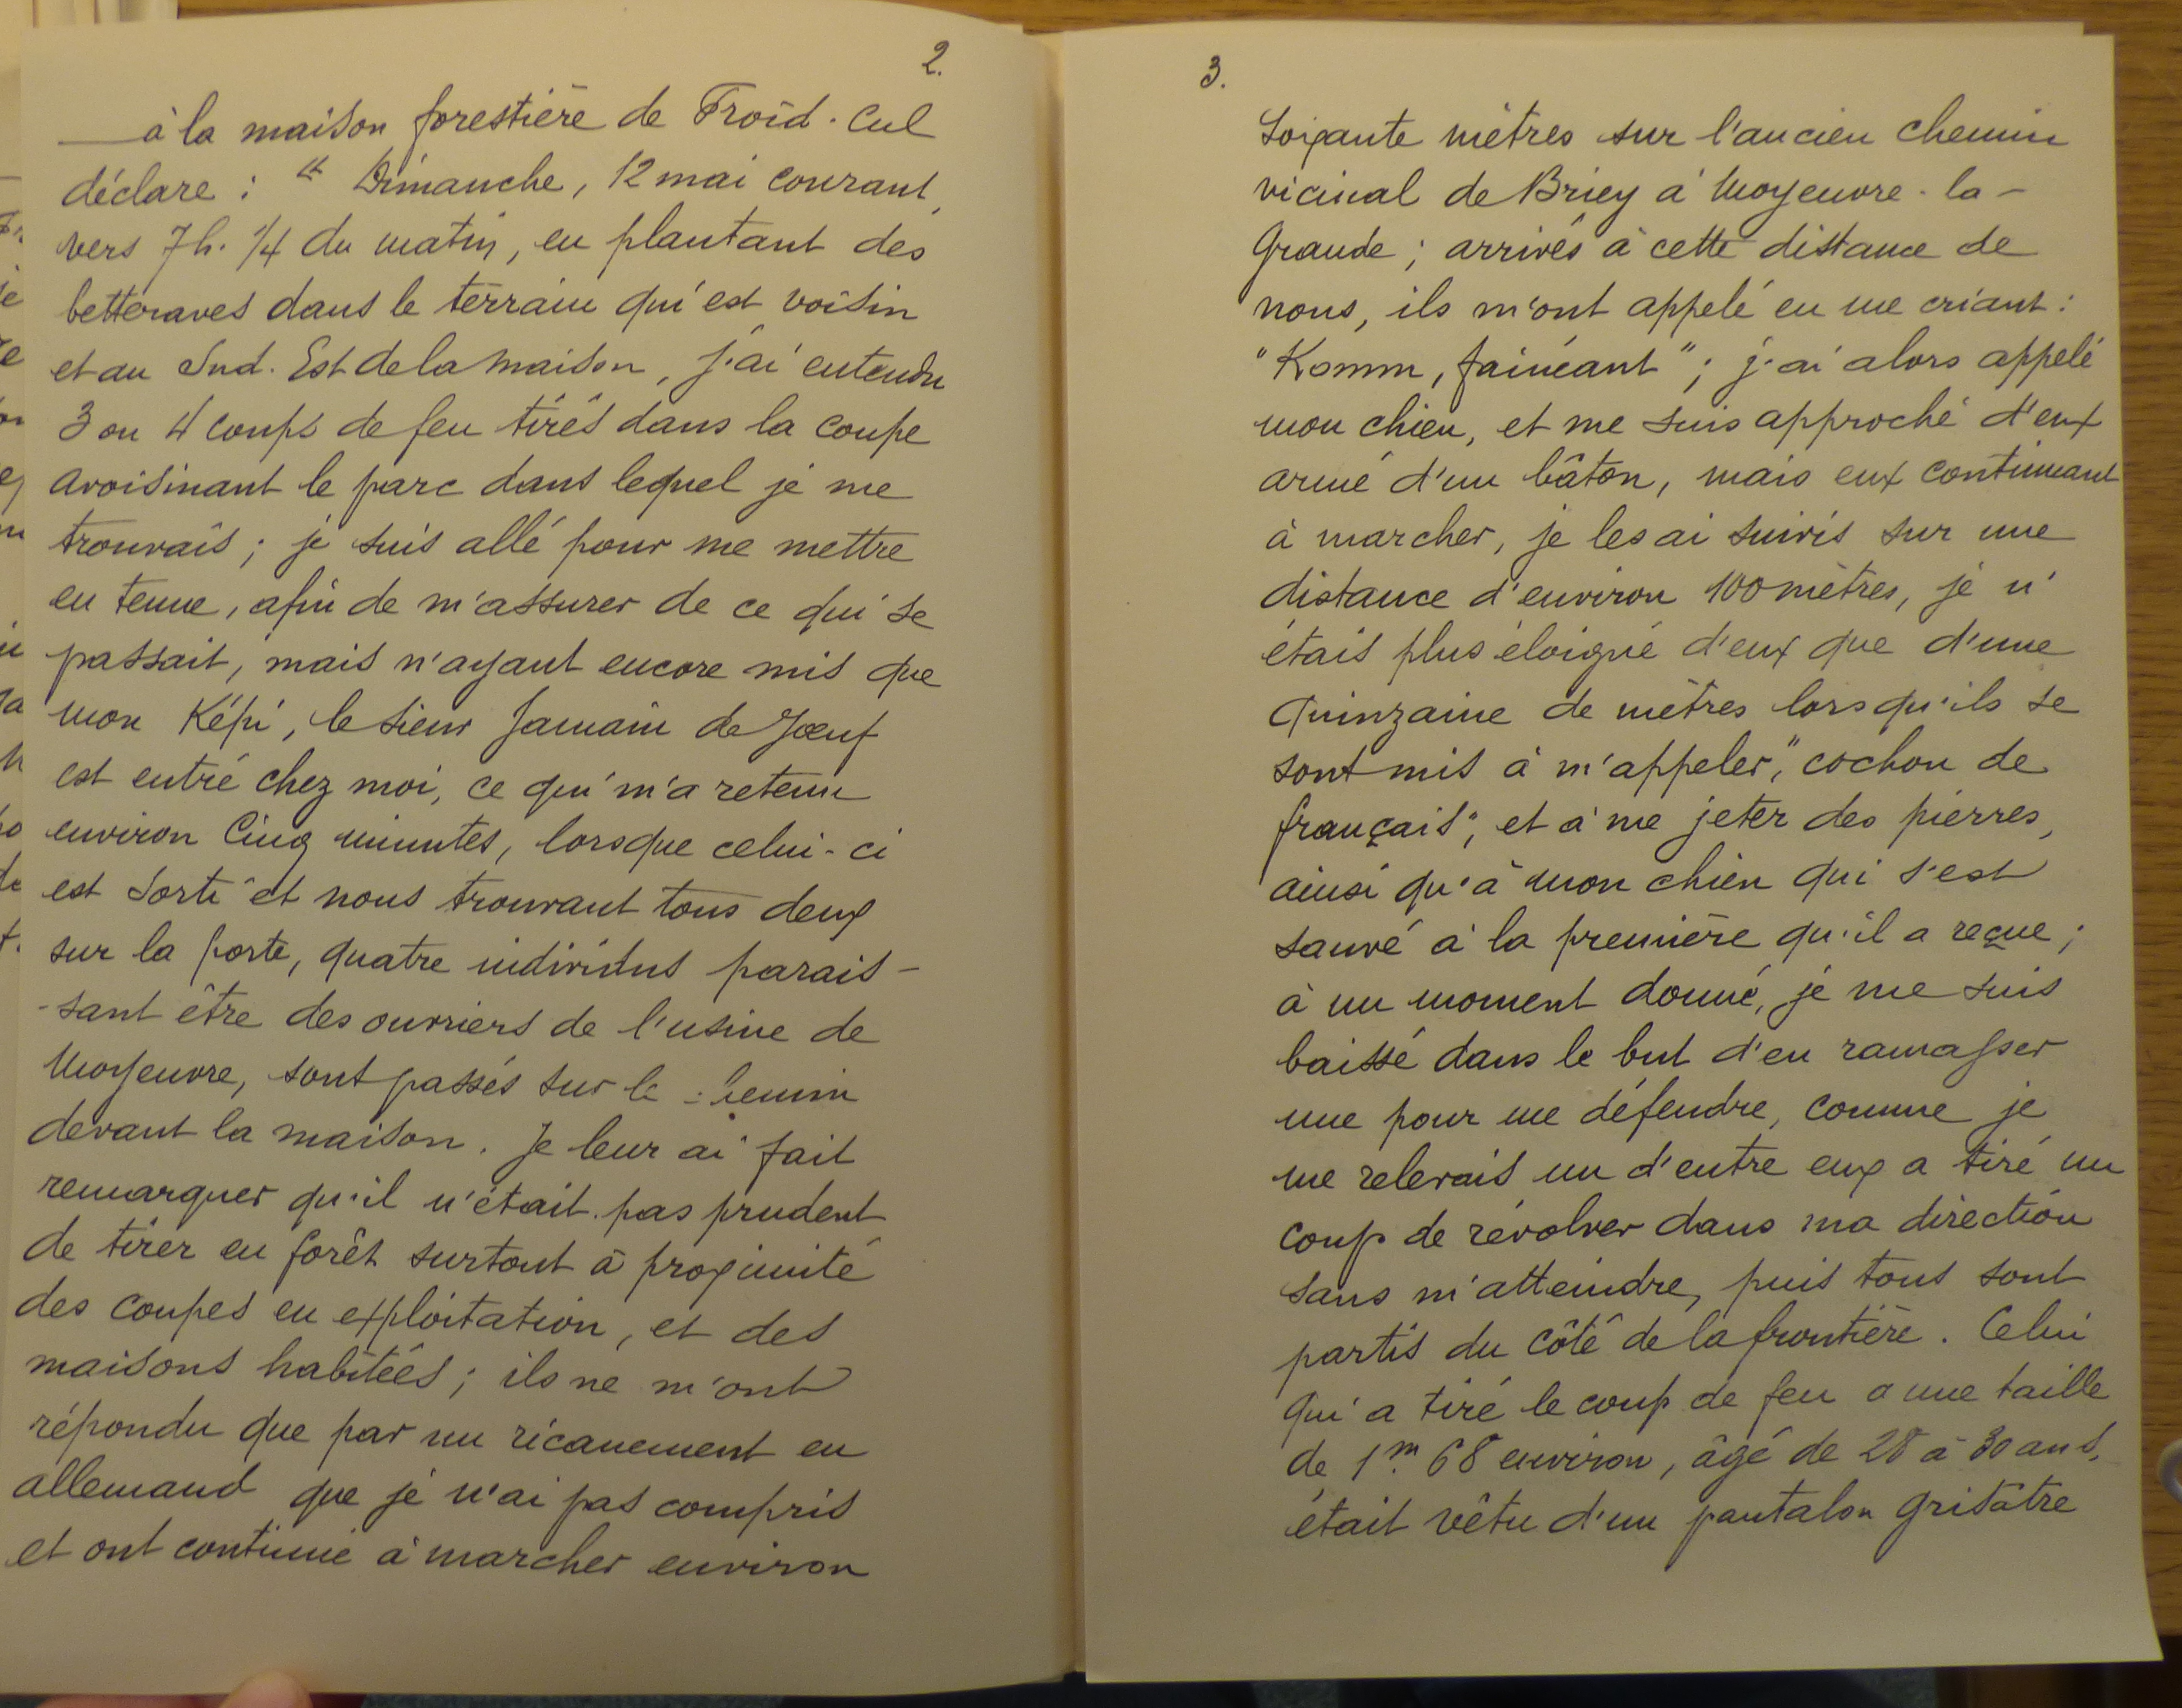 2.
à la maison forestière de Froid-Cul
déclare : " Dimanche, 12 mai courant,
vers 7h. 1/4 du matin, en plantant des
betteraves dans le terrain qui est voisin
et au Sud-Est de la maison, j'ai entendu
3 ou 4 coups de feu tirés dans la coupe
avoisinant le parc dans lequel je me
trouvais ; je suis allé pour me mettre
en tenue, afin de m'assurer de ce qui se
passait, mais n'ayant encore mis que
mon Képi, le sieur Jamain de Jœuf
est entré chez moi, ce qui m'a retenu
environ Cinq minutes, lorsque celui-ci
est sorti et nous trouvant tous deux
sur la porte, quatre individus parais-
-sant être des ouvriers de l'usine de
Moyeuvre, sont passés sur le chemin
devant la maison. Je leur ai fait
remarquer qu'il n'était pas prudent
de tirer en forêt surtout à proximité
des coupes en exploitation, et des
maisons habitées ; ils ne m'ont
répondu que par un ricanement en
allemand que je n'ai pas compris
et ont continué à marcher environ
3.
Soixante mètres sur l'ancien chemin
vicinal de Briey à Moyeuvre-la-
Grande ; arrivés à cette distance de
nous, ils m'ont appelé en me criant :
"Komm, fainéant" ; j'ai alors appelé
mon chien, et me suis approché d'eux
armé d'un bâton, mais eux continuant
à marcher, je les ai suivis sur une
distance d'environ 100 mètres, je n'
étais plus éloigné d'eux que d'une
quinzaine de mètres lorsqu'ils se
sont mis à m'appeler, "cochon de
français", et à me jeter des pierres,
ainsi qu'à mon chien qui s'est
sauvé à la première qu'il a reçue ;
à un moment donné, je me suis
baissé dans le but d'en ramasser
une pour me défendre, comme je
me relevais un d'entre eux a tiré un
coup de révolver dans ma direction
sans m'atteindre, puis tous sont
partis du côté de la frontière. Celui
qui a tiré le coup de feu a une taille
de 1m. 68 environ, âgé de 28 à 30 ans,
était vêtu d'un pantalon grisâtre